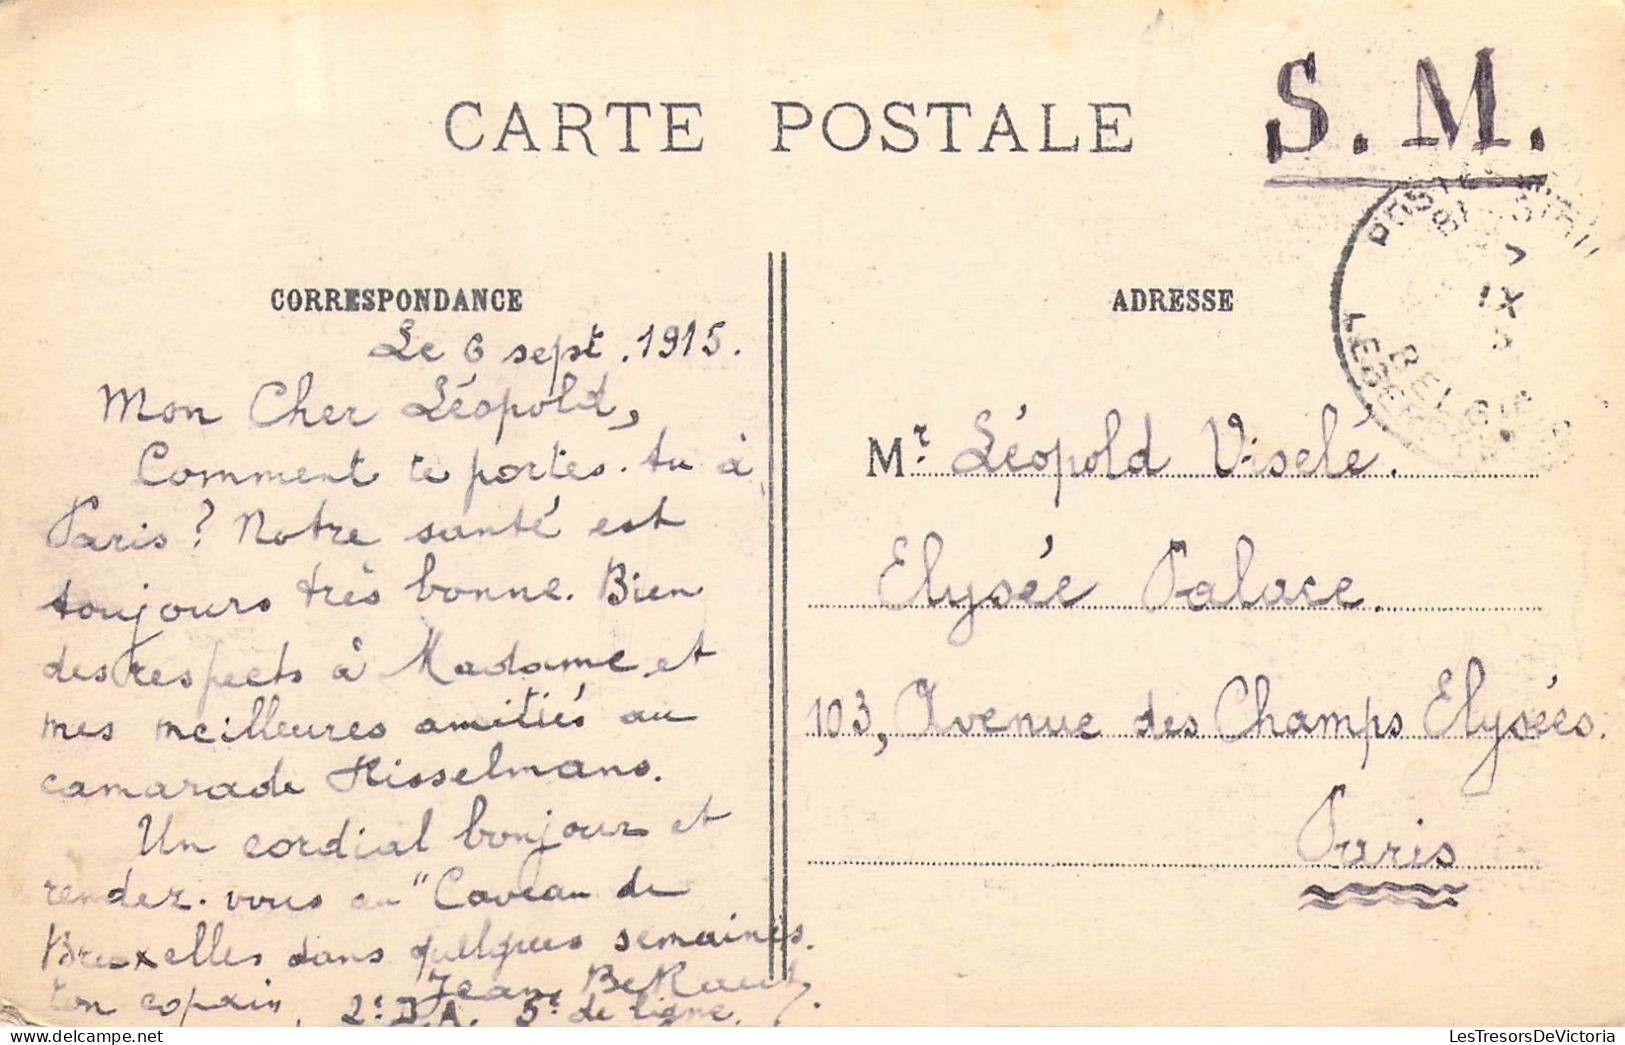 CARTE POSTALE
S. M.
CORRESPONDANCE
Le 6 sept. 1915.
Mon Cher Léopold,
Comment te portes-tu à
Paris? Notre santé est
toujours très bonne. Bien
des respects à Madame et
mes meilleures amitiés au
camarade Hisselmans.
Un cordial bonjour et
rendez-vous au "Caveau de
Bruxelles dans quelques semaines.
ton copain, Jean
2e D.A. 5e de ligne.
ADRESSE
POSTES
7
IX
BELG
LEGER
Mr. Léopold Viselé.
Elysée Palace.
103, Avenue des Champs Elysées.
Paris
LesTresorsDeVictoria